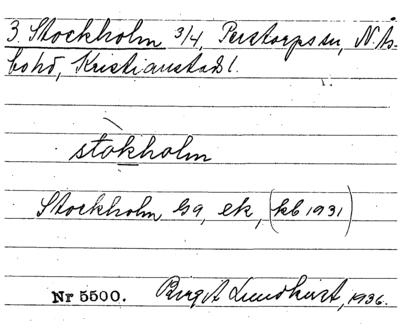 3. Stockholm 3/4, Perstorps sn, N. Ås-
bo hd, Kristianstads l.
stokholm
Stockholm Ga, ek, (kb 1931)
Nr 5500. Birgit Lundkvist, 1936.